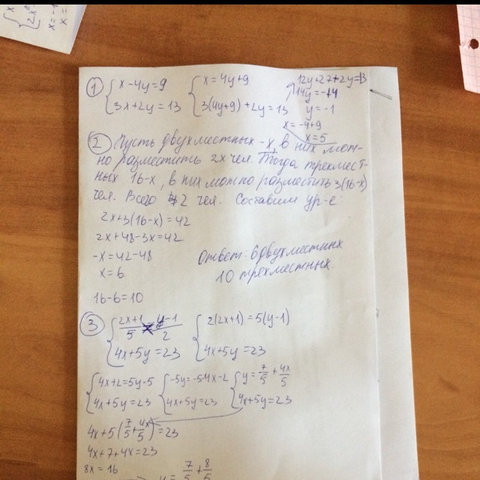 1) { x-4y=9 { x=4y+9 12y+27+2y=13
{ 3x+2y=13 { 3(4y+9)+2y=13 14y=-14
y=-1
x=-4+9
x=5
2) Пусть двухместных -x, в них мож-
но разместить 2x чел. Тогда трехмест-
ных 16-x, в них можно разместить 3(16-x)
чел. Всего 42 чел. Составим ур-е:
2x+3(16-x)=42
2x+48-3x=42
-x=42-48
x=6
16-6=10
Ответ: 6 двухместных
10 трехместных.
3) { (2x+1)/5 = (y-1)/2 { 2(2x+1)=5(y-1)
{ 4x+5y=23 { 4x+5y=23
{ 4x+2=5y-5 { -5y=-5-4x-2 { y=7/5+4x/5
{ 4x+5y=23 { 4x+5y=23 { 4x+5y=23
4x+5(7/5+4x/5)=23
4x+7+4x=23
8x=16
y=7/5+8/5